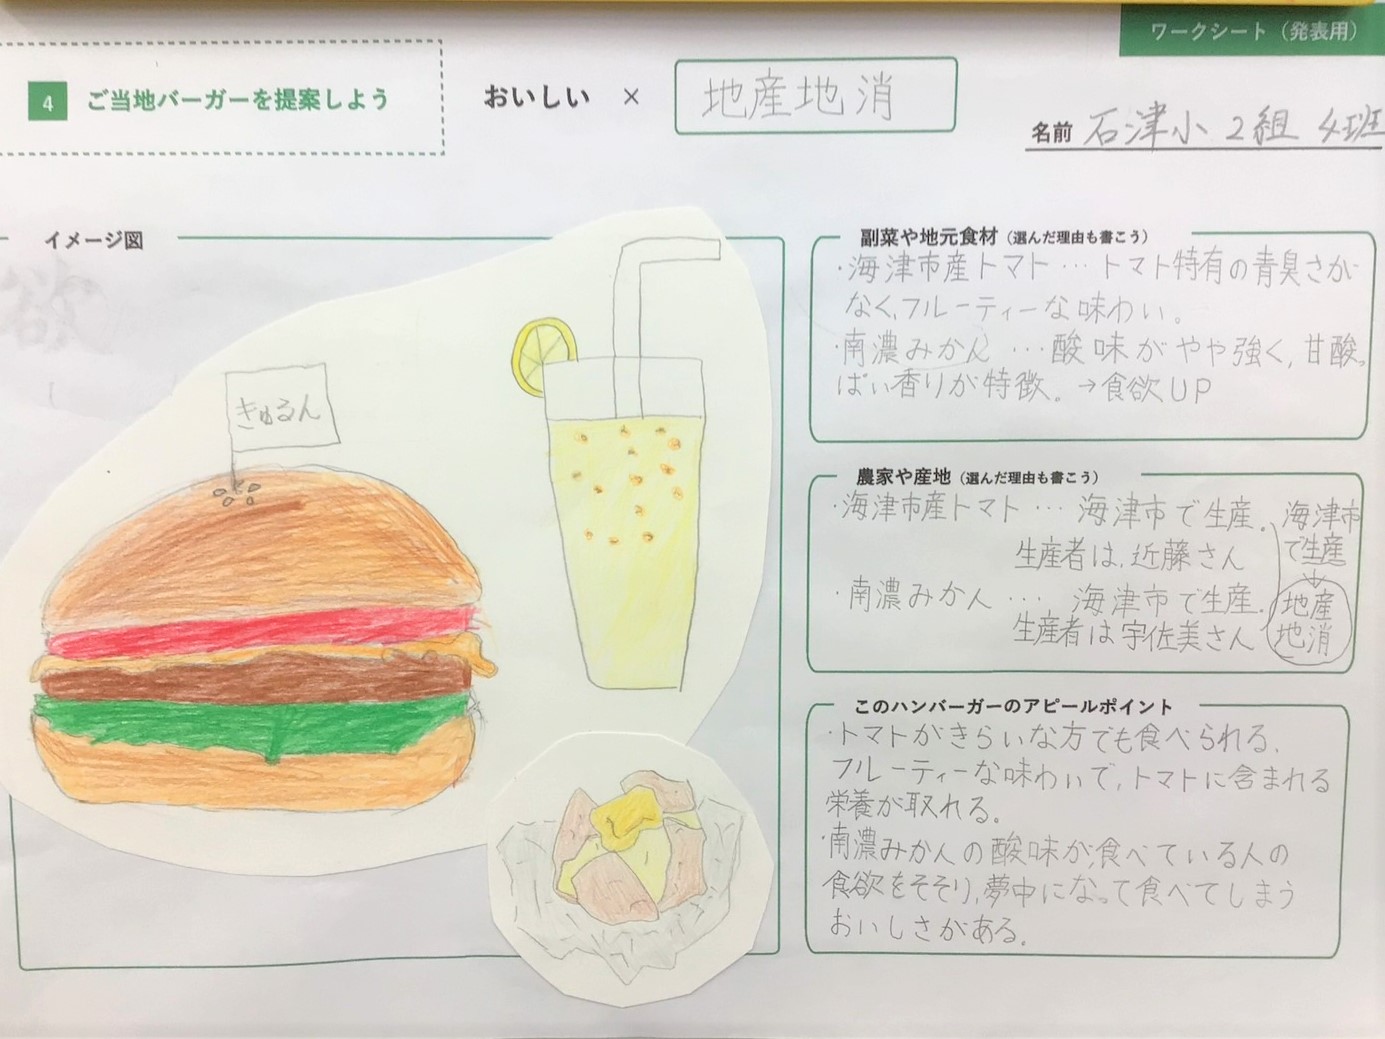 ワークシート（発表用）
4 ご当地バーガーを提案しよう
おいしい × 地産地消
名前 石津小 2組 4班
イメージ図
きゅるん
副菜や地元食材（選んだ理由も書こう）
・海津市産トマト…トマト特有の青臭さが
なく、フルーティーな味わい。
・南濃みかん…酸味がやや強く、甘酸っ
ぱい香りが特徴。→食欲UP
農家や産地（選んだ理由も書こう）
・海津市産トマト…海津市で生産。
生産者は、近藤さん
・南濃みかん…海津市で生産。
生産者は宇佐美さん
海津市
で生産
↓
地産
地消
このハンバーガーのアピールポイント
・トマトがきらいな方でも食べられる、
フルーティーな味わいで、トマトに含まれる
栄養が取れる。
・南濃みかんの酸味が食べている人の
食欲をそそり、夢中になって食べてしまう
おいしさがある。
欲